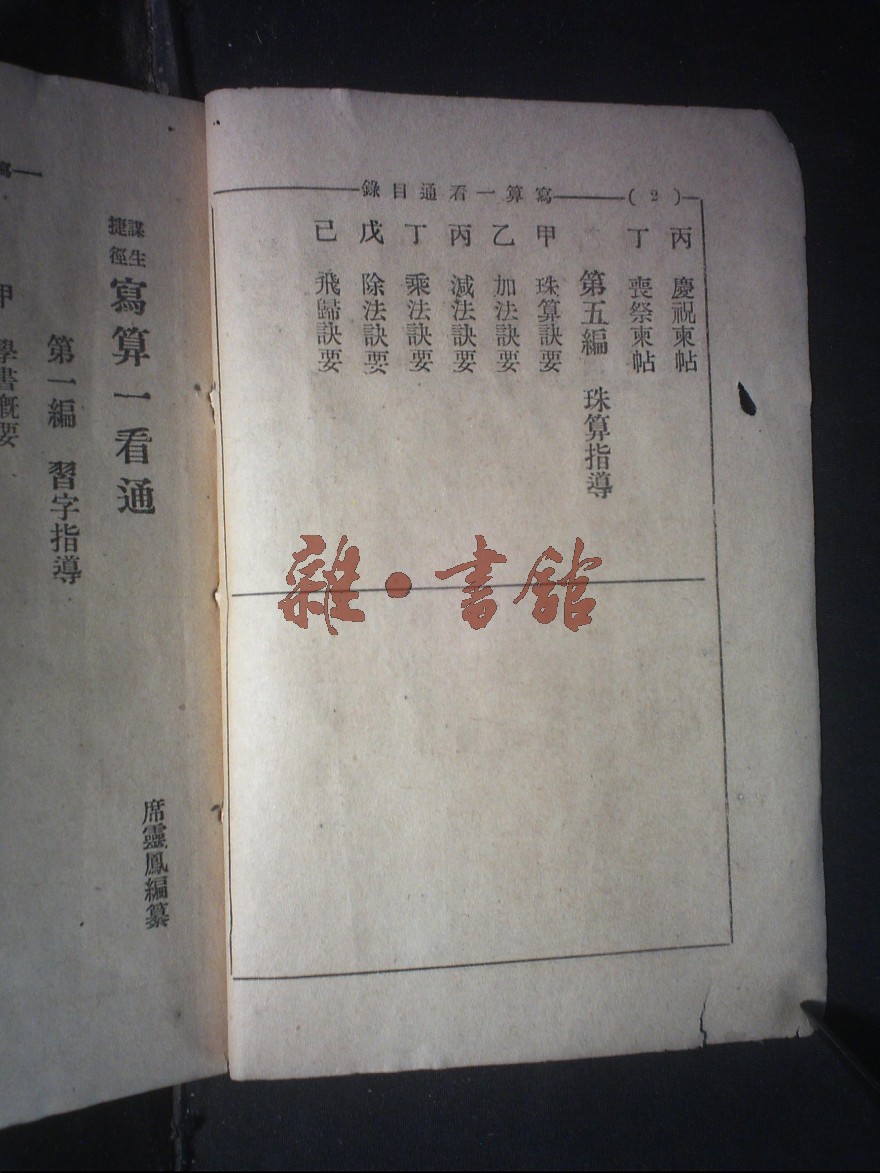 (2)
寫算一看通目錄
丙 慶祝柬帖
丁 喪祭柬帖
第五編 珠算指導
甲 珠算訣要
乙 加法訣要
丙 減法訣要
丁 乘法訣要
戊 除法訣要
己 飛歸訣要
雜·書館
謀生
捷徑
寫算一看通
席靈鳳編纂
第一編 習字指導
甲 學書概要
寫